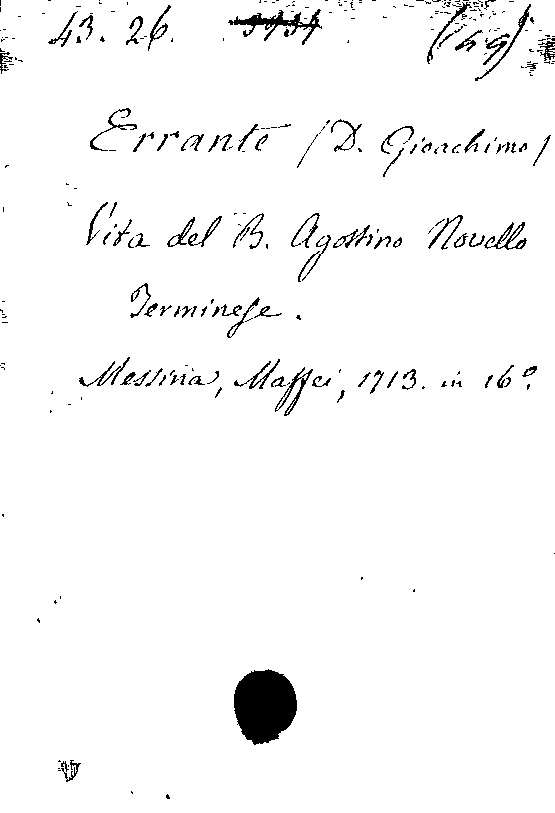 43. 26.
Errante (D. Gioachimo)
Vita del B. Agostino Novello
Terminese.
Messina, Maffei, 1713. in 16°.